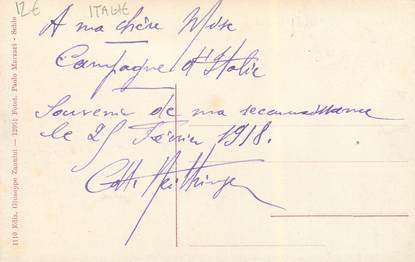 12€ ITALIE
A ma chère Mise
Campagne d'Italie
Souvenir de ma reconnaissance
le 25 Février 1918.
1110 Ediz. Giuseppe Zannini — 12951 Fotot. Paolo Marzari - Schio